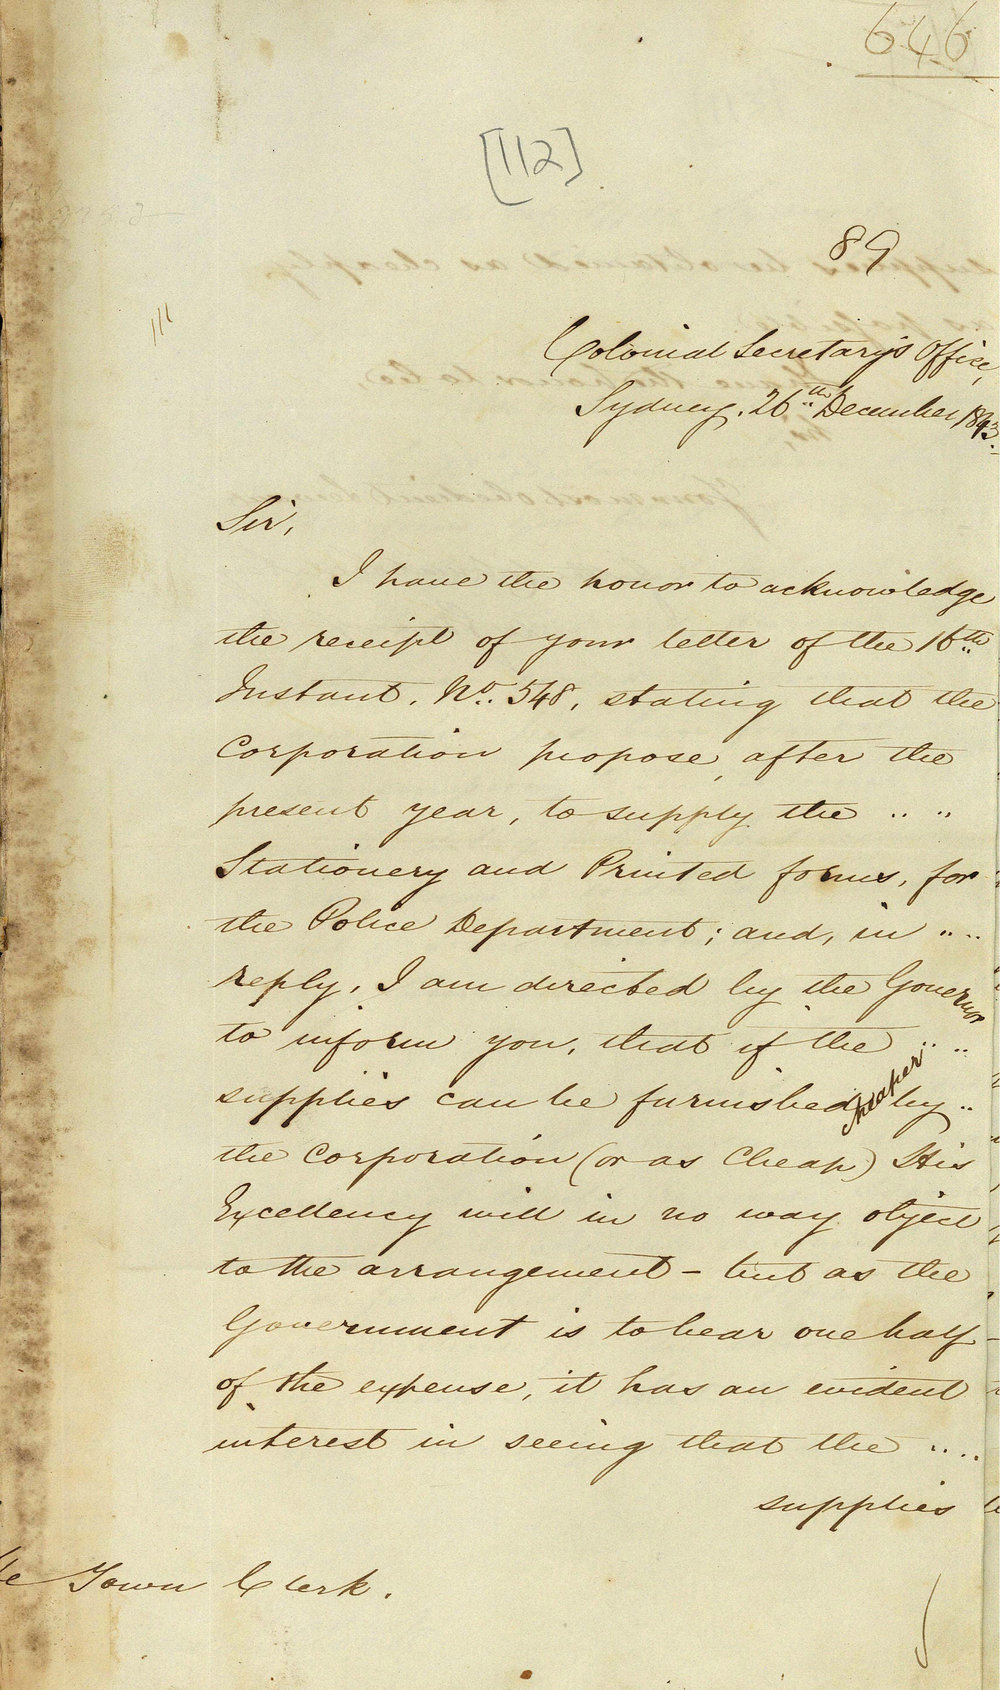 646
[112]
89
Colonial Secretary's Office,
Sydney, 26th December 1843.
Sir,
I have the honor to acknowledge
the receipt of your letter of the 16th
Instant, No. 548, stating that the
Corporation propose, after the
present year, to supply the .. ..
Stationery and Printed forms, for
the Police Department; and, in .. ..
reply, I am directed by the Governor
to inform you, that if the .. ..
supplies can be furnished cheaper by ..
the Corporation (or as Cheap) His
Excellency will in no way object
to the arrangement – but as the
Government is to bear one half
of the expense, it has an evident
interest in seeing that the ....
supplies
Town Clerk.